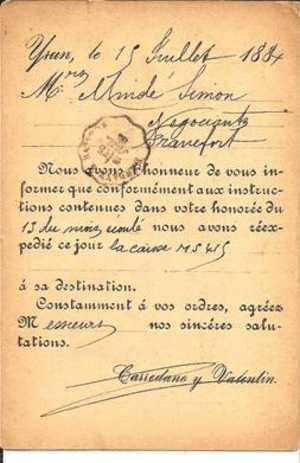 Yrun, le 15 Juillet 1884
Mrs Simon
Negociants
Francfort
Nous avons l'honneur de vous in-
former que conformément aux instruc-
tions contenues dans votre honorée du
13 du mois écoulé nous avons réex-
pedié ce jour la caisse
á sa destination.
Constamment á vos ordres, agréez
Messieurs nos sincéres salu-
tations.
Carredano y Valentin.